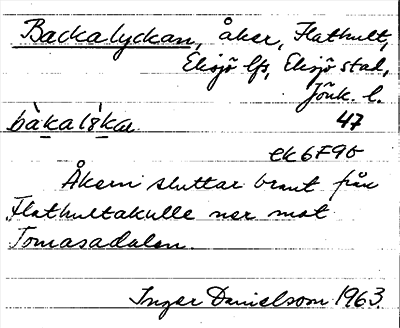 Backalyckan, åker, Flathult,
Eksjö lfs, Eksjö stad,
Jönk. l.
bàkalỳkan 47
ek 6F9b
Åkern sluttar brant från
Flathultakulle ner mot
Tomasadalen.
Inger Danielsson 1963.